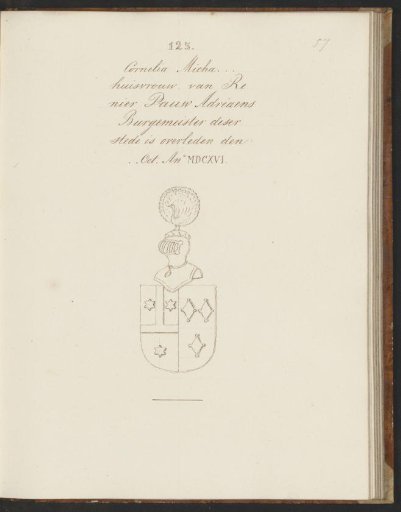 125.
57
Cornelia Micha...
huisvrouw van Re
nier Pauw Adriaens
Burgemeister deser
stede is overleden den
.. Oct. An° MDCXVI.